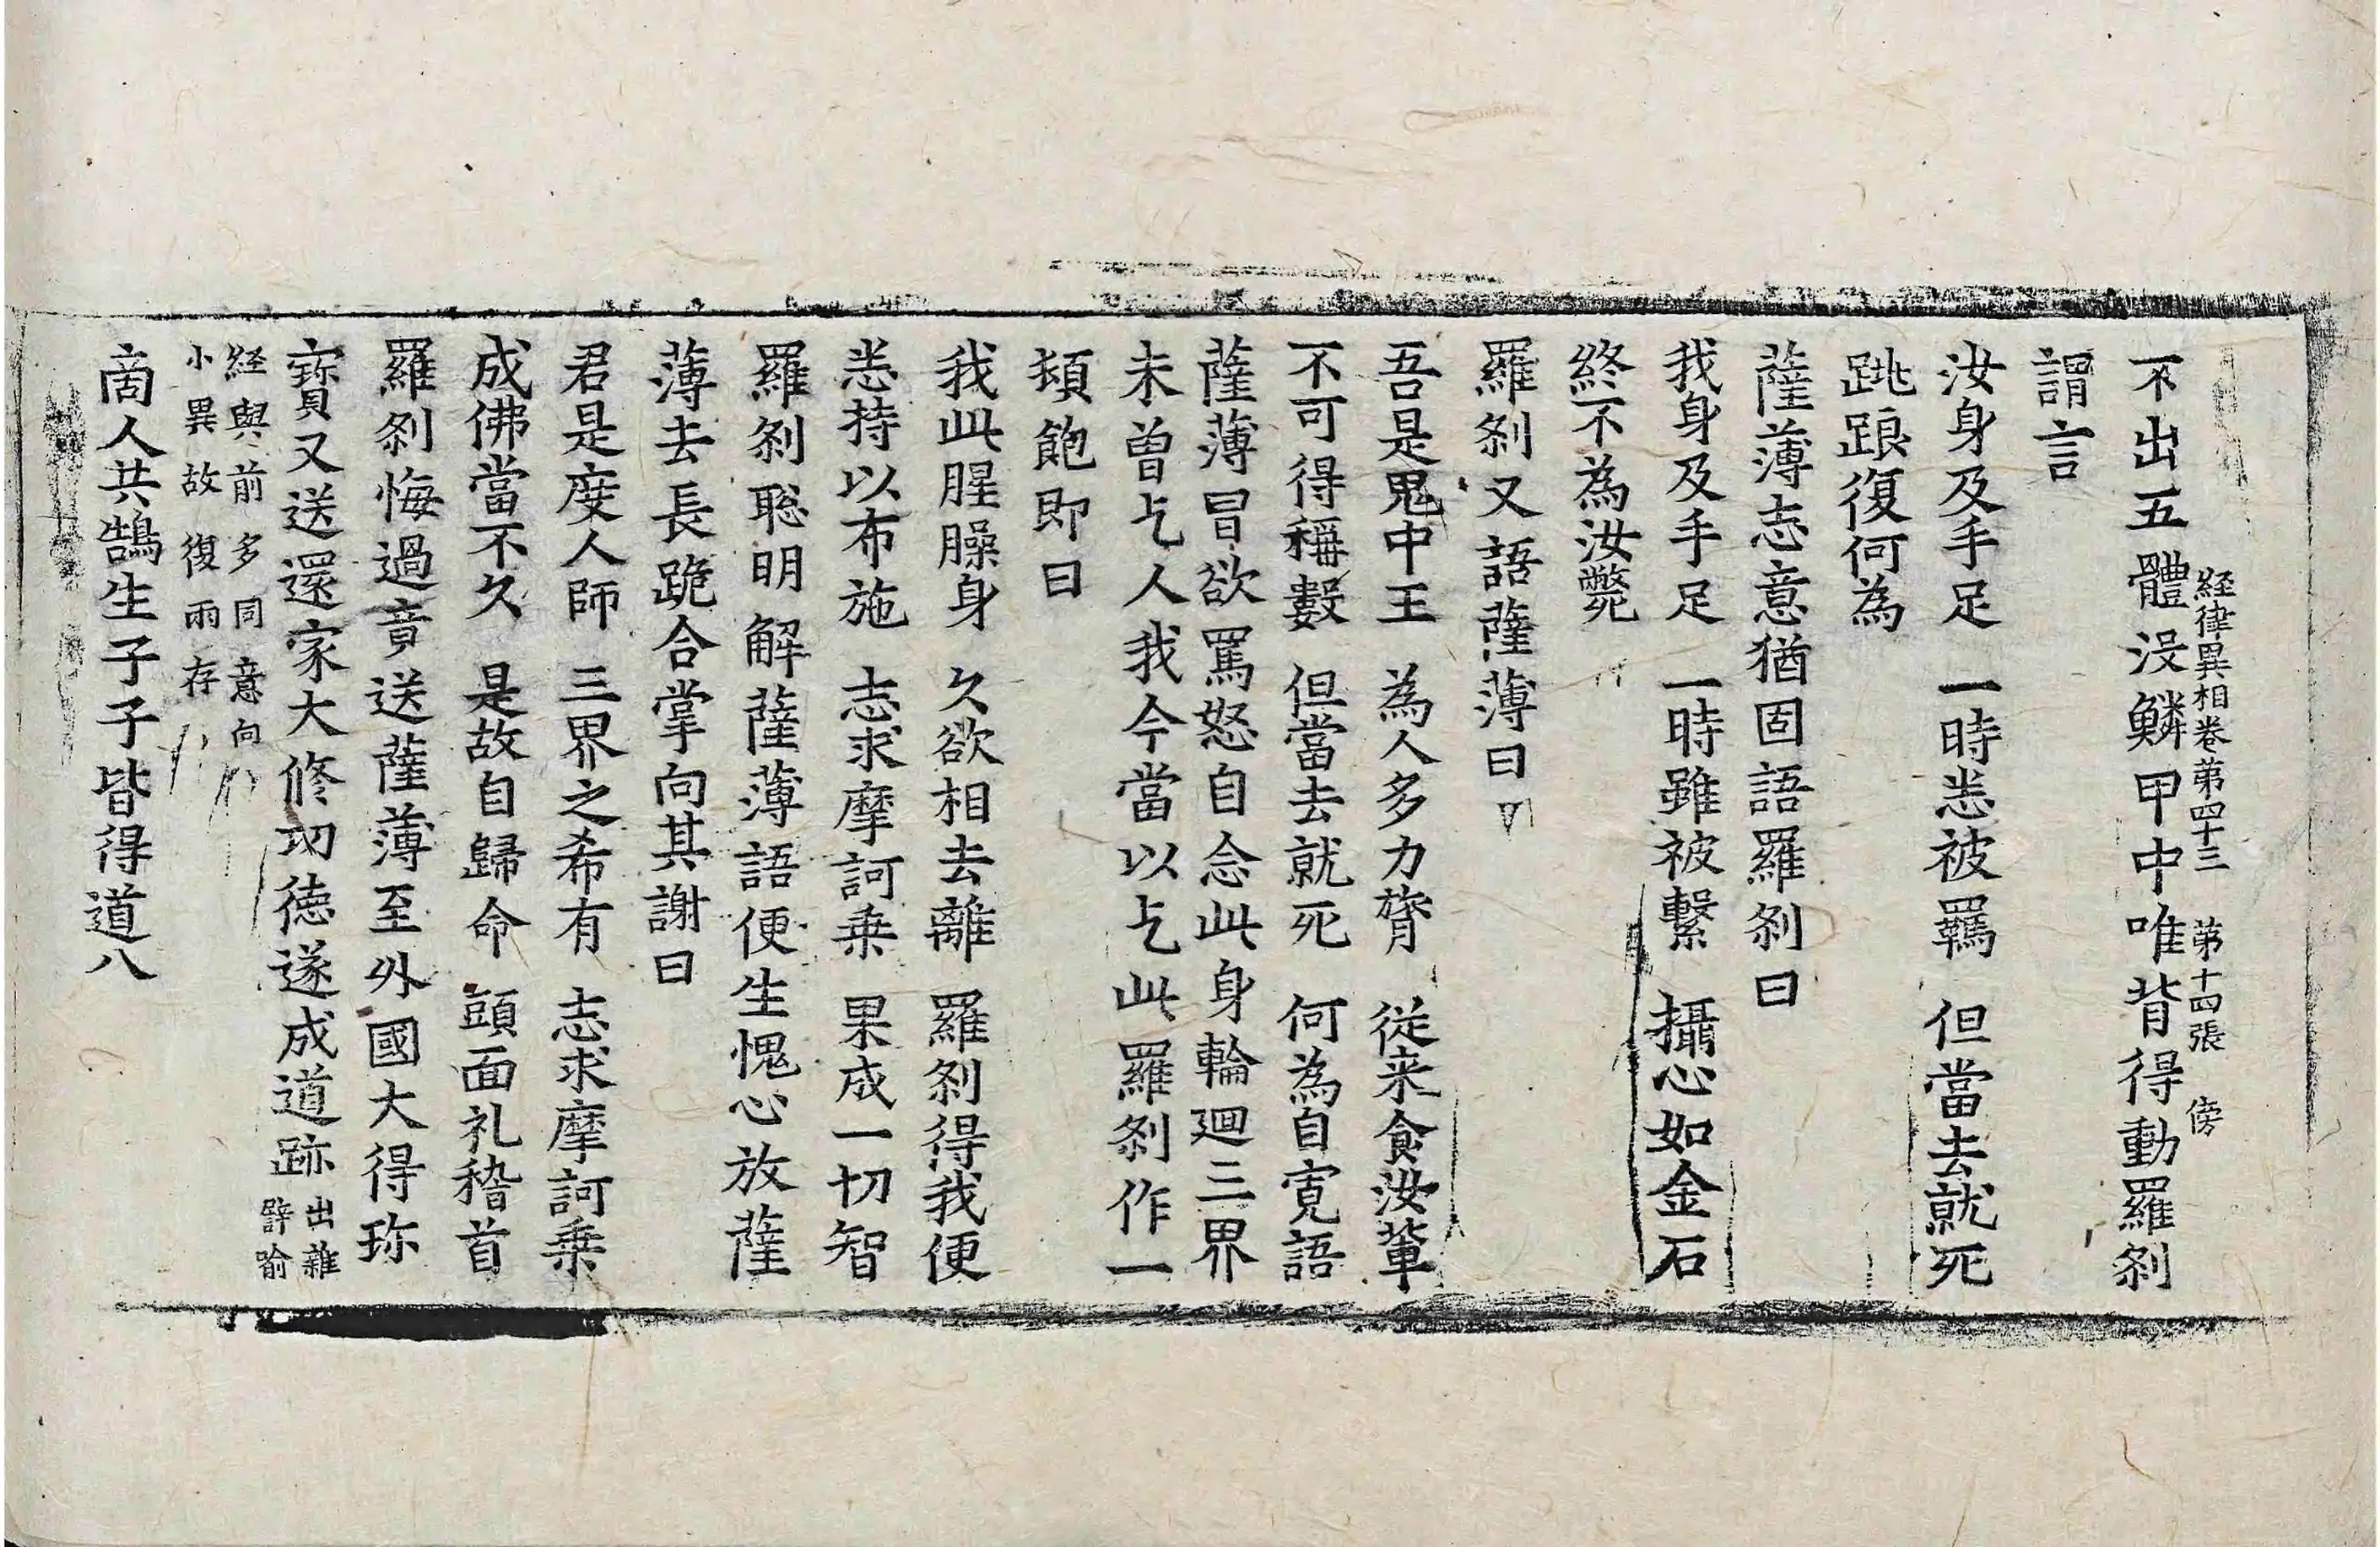 経律異相卷第四十三 第十四張 傍
不出五體没鱗甲中唯背得動羅刹
謂言
汝身及手足 一時悉被羈 但當去就死
跳踉復何為
薩薄志意猶固語羅刹曰
我身及手足 一時雖被繫 攝心如金石
終不為汝斃
羅刹又語薩薄曰
吾是鬼中王 為人多力膂 従来食汝軰
不可得稱數 但當去就死 何為自寛語
薩薄冒欲罵怒自念此身輪廻三界
未曾乞人我今當以乞此羅刹作一
頓飽即曰
我此腥臊身 久欲相去離 羅刹得我便
悉持以布施 志求摩訶乗 果成一切智
羅刹聡明解薩薄語便生愧心放薩
薄去長跪合掌向其謝曰
君是度人師 三界之希有 志求摩訶乗
成佛當不久 是故自歸命 頭面礼稽首
羅刹悔過竟送薩薄至外國大得珎
寶又送還家大修功徳遂成道跡 出雜譬喻
経與前多同意向
小異故復兩存
商人共鵠生子子皆得道八